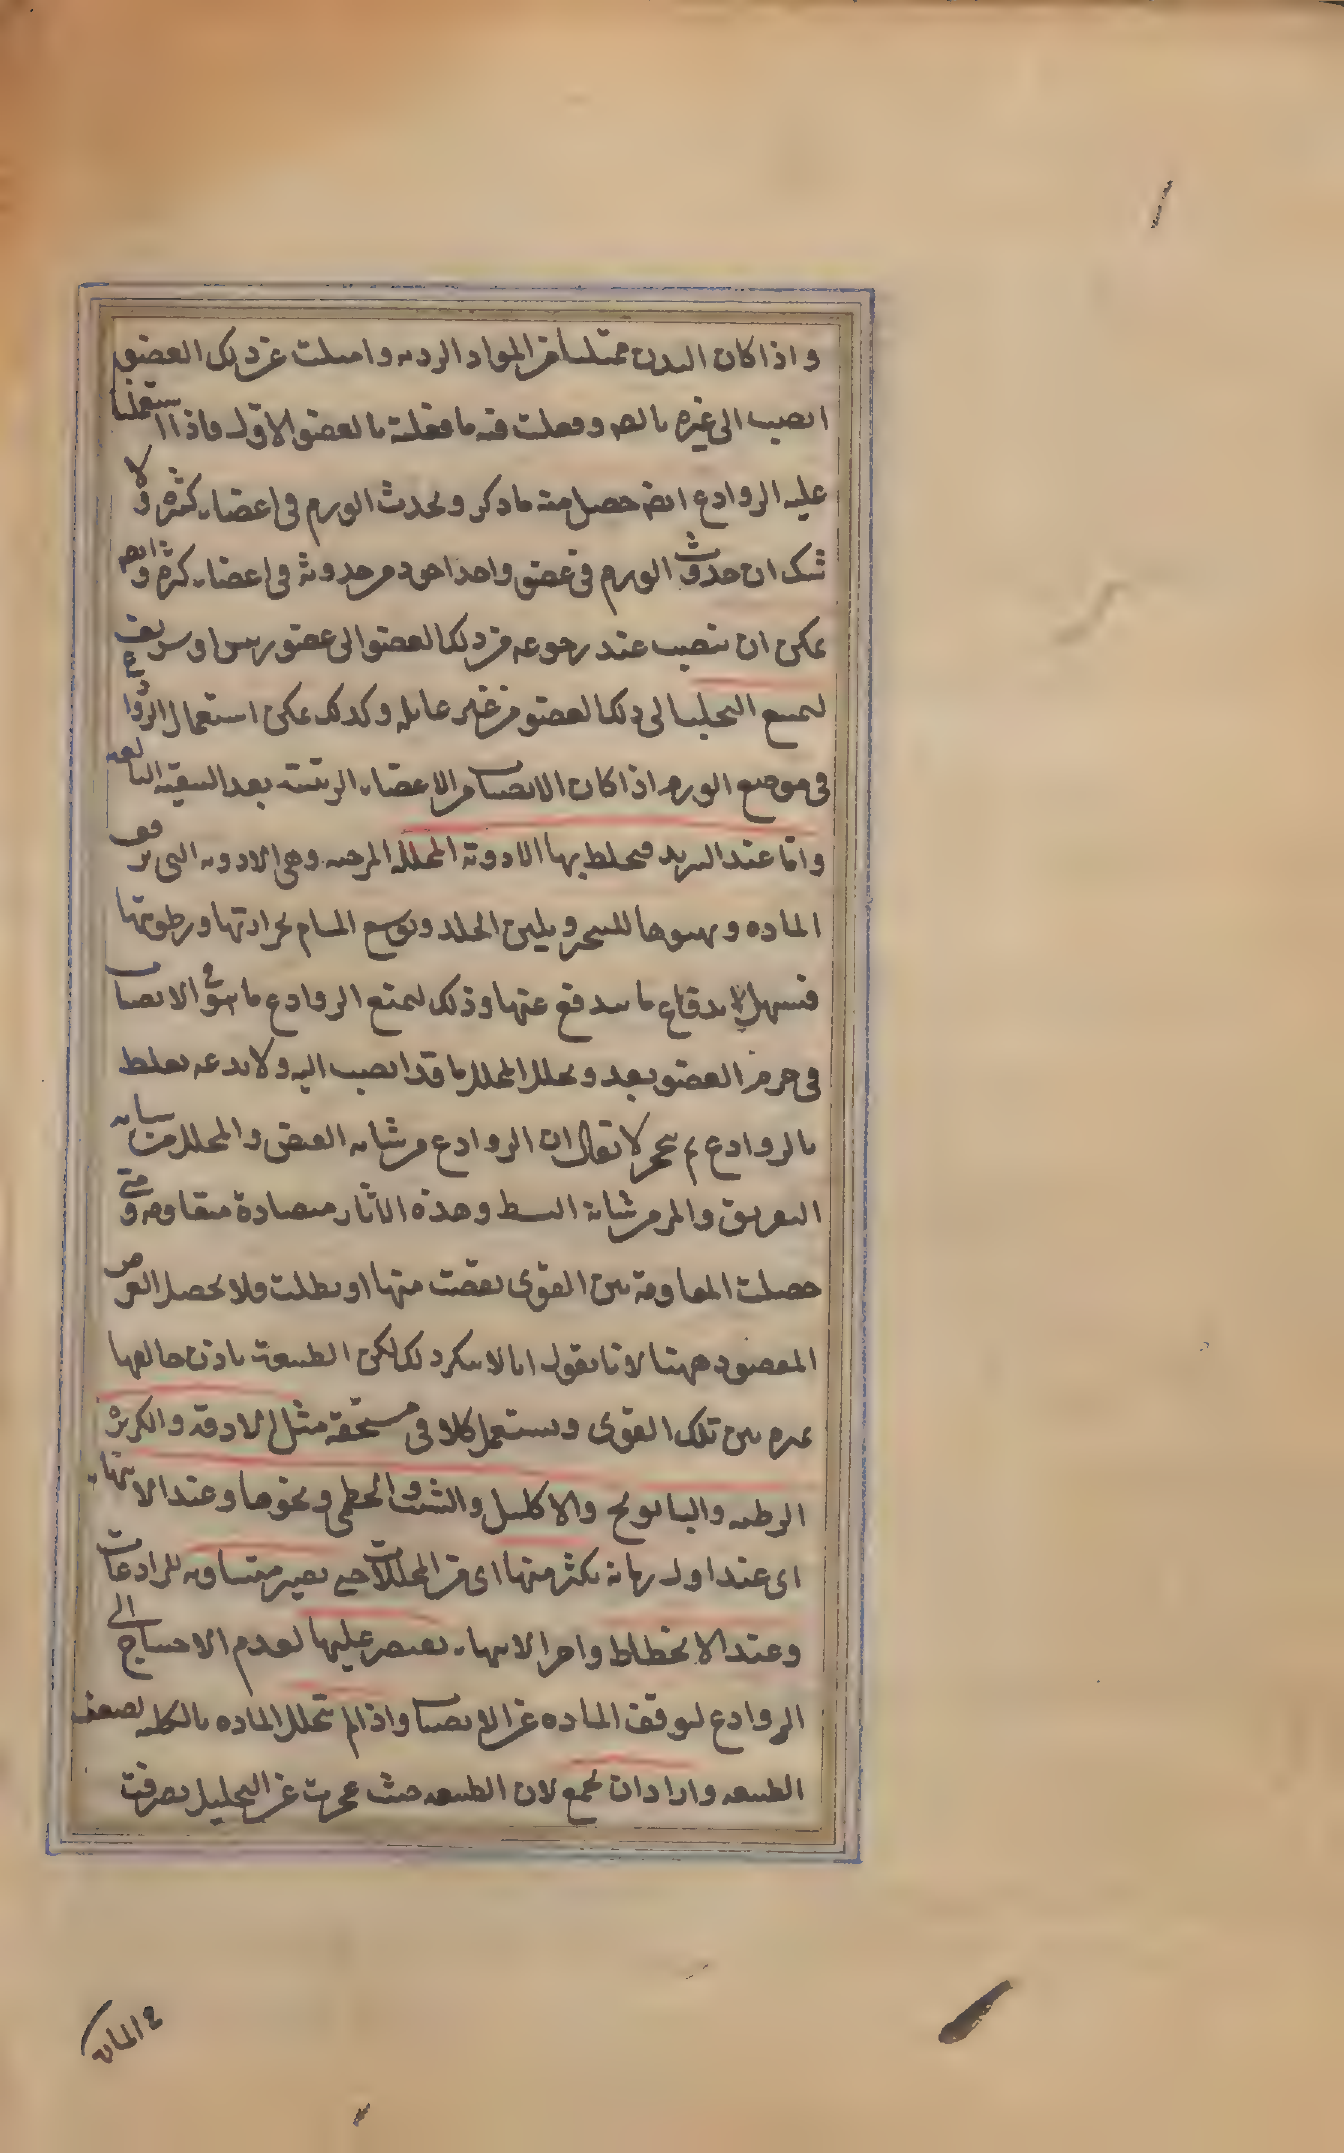 واذا كان البدن ممتلئا من المواد الردية واميلت عن ذلك العضو
انصب الى غيره بالضر وفعلت فيه ما فعلته بالعضو الاول فاذا استعملنا
عليه الروادع ايض حصل منه ما ذكر ويحدث الورم في اعضاء كثيرة ولا
شك ان حدوث الورم في عضو واحد اجود من حدوثه في اعضاء كثرة وايض
يمكن ان ينصب عند رجوعه من ذلك العضو الى عضو رييس او شريف
ليمنع التحلب الى ذلك العضو من غير غايله وكذلك يمكن استعمال الروادع
في موضع الورم اذا كان الانصباب من الاعضاء الرئيسة بعد التنقية البالغه
واما عند التزيد فيخلط بها الادوية المحلله المرخيه وهي الادويه التي ترقق
الماده ويهيوها للتبخر ويلين الجلد ويوسع المسام بحرارتها ورطوبتها
فيسهل لاندفاع ما يندفع عنها وذلك ليمنع الروادع ما هو في الانصباب
في جرم العضو بعد ويحلل المحلل ما قد انصب اليه ولا يدعه يغلظ
بالروادع ثم يتحجر لا يقال ان الروادع من شانه القبض والمحلل من شانه
التفريق والمر من شانه البسط وهذه الاثار متضادة متقاومه ومتى
حصلت المقاومة بين القوى نقصت منها او بطلت فلا يحصل الغرض
المقصود ههنا لانا نقول انا لا ننكر ذلك لكن الطبيعة باذن خالقها
تميز بين تلك القوى ويستعمل كلا في مستحقه مثل الادقه والكزبره
الرطبه والبابونج والاكليل والشبت والخطمي ونحوها وعند الانتهاء
اى عند اول زمانه يكثر منها اى من المحللات حتى يصير متساويه للرادعات
وعند الانحطاط واخر الانتهاء يقتصر عليها لعدم الاحتياج الى
الروادع لتوقف الماده عن الانصباب واذا لم تتحلل الماده بالكليه لضعف
الطبيعه واراد ان يجمع لان الطبيعه حيث عجزت عن التحليل تصرفت
في الماده